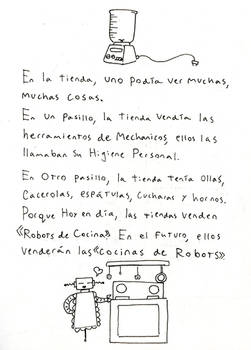 En la tienda, uno podía ver muchas,
muchas cosas.
En un Pasillo, la tienda vendía las
herramientos de Mechanicos, ellos las
llamaban Su Higiene Personal.
En Otro pasillo, la tienda tenía Ollas,
Cacerolas, espátulas, Cucharas y hornos.
Porque Hoy en día, las tiendas venden
«Robots de Cocina» En el Futuro, ellos
venderán las «Cocinas de Robots»